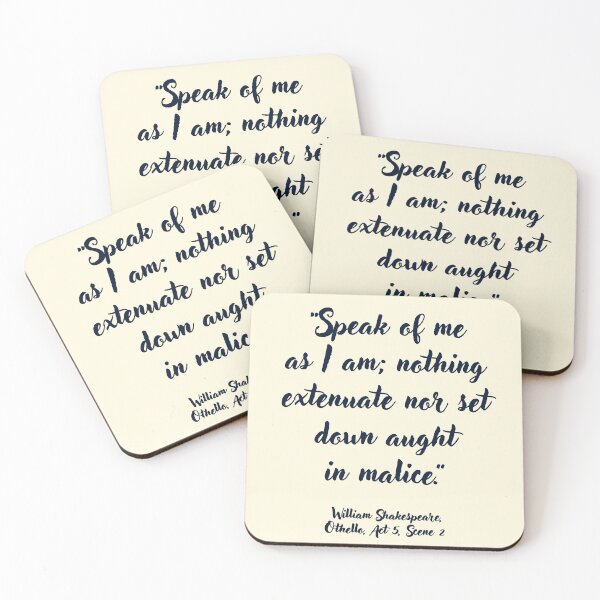 "Speak of me
as I am; nothing
extenuate nor set
aught
"Speak of me
as I am; nothing
extenuate nor set
down aught
in malice."
"Speak of me
as I am; nothing
extenuate nor set
down aught
in malice
William
Othello, Act
"Speak of me
as I am; nothing
extenuate nor set
down aught
in malice."
William Shakespeare,
Othello, Act 5, Scene 2